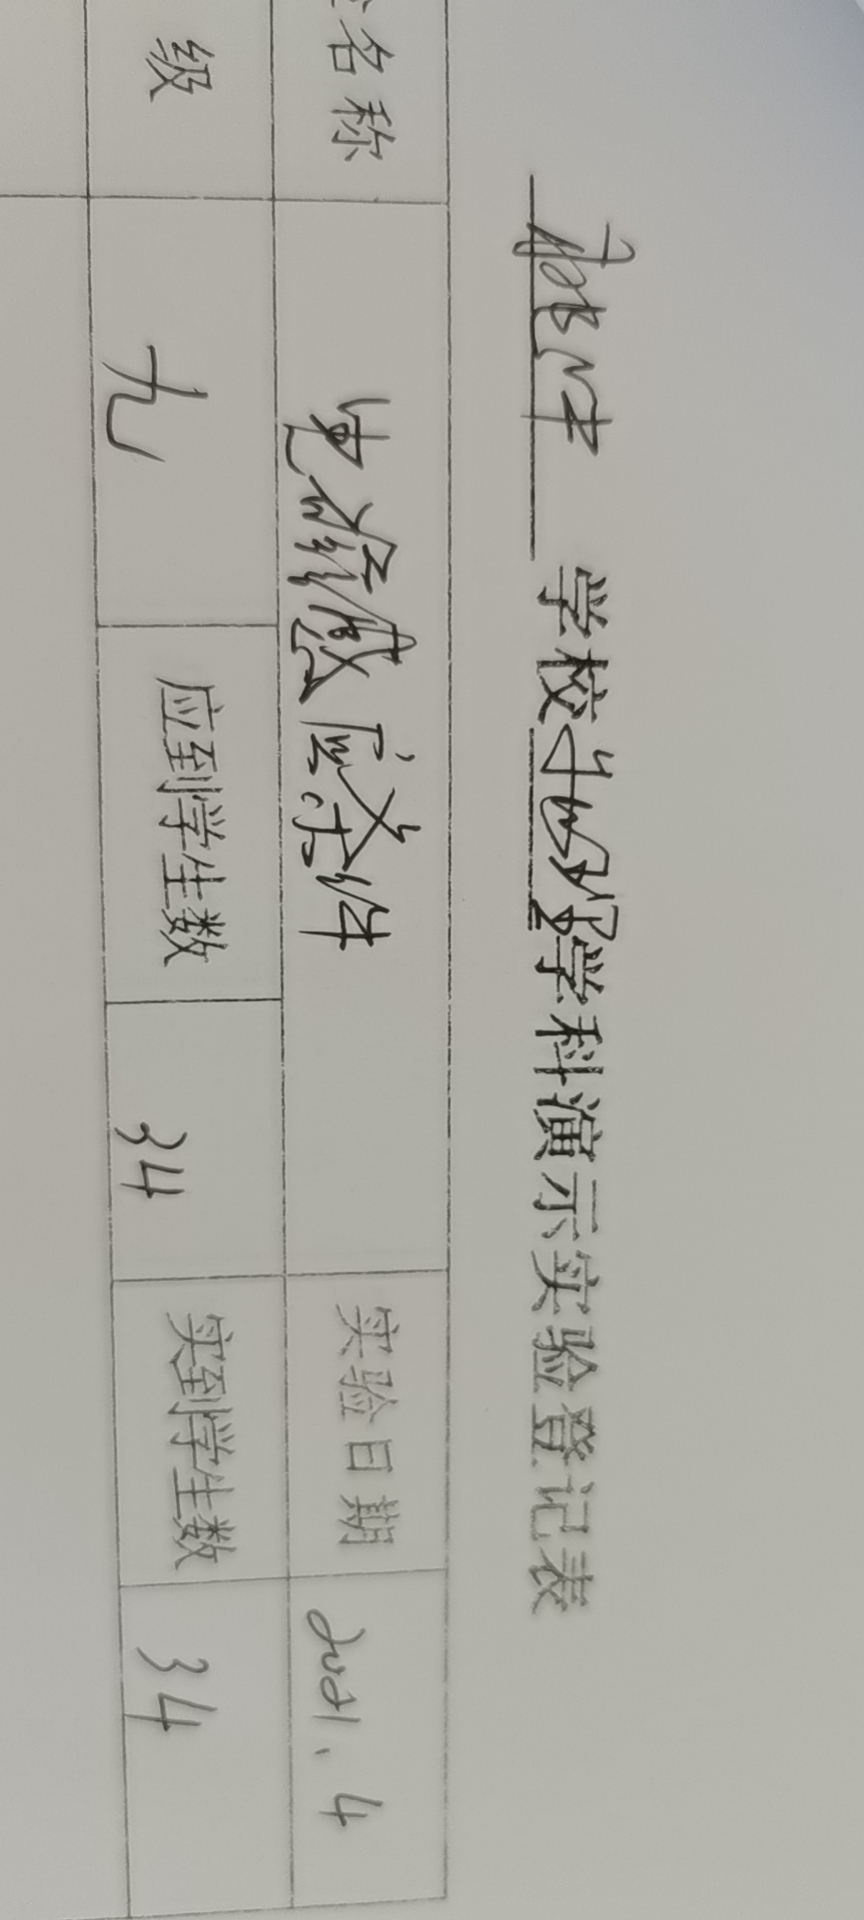 学校物理学科演示实验登记表
名称 电磁感应条件 实验日期 2021.4
级 九 应到学生数 34 实到学生数 34